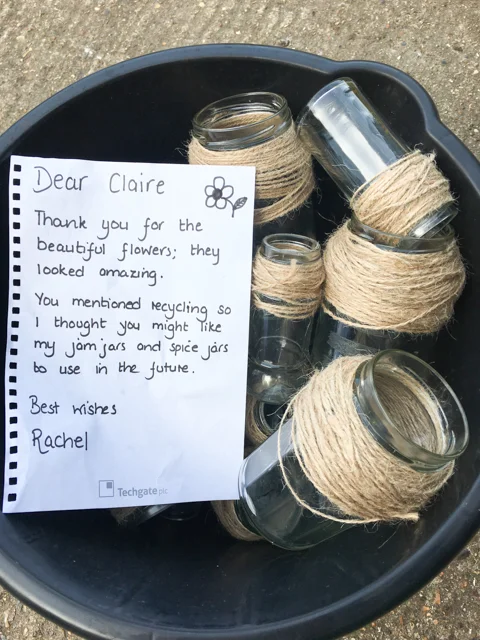 Dear Claire
Thank you for the
beautiful flowers; they
looked amazing.
You mentioned recycling so
I thought you might like
my jam jars and spice jars
to use in the future.
Best wishes
Rachel
Techgate plc